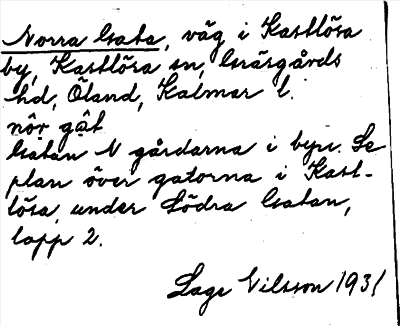 Norra Gata, väg i Kastlösa
by, Kastlösa sn, Gräsgårds
hd, Öland, Kalmar l.
nör gat
Gatan N gårdarna i byn. Se
plan över gatorna i Kast-
lösa, under Södra Gatan,
lapp 2.
Lage Nilsson 1931